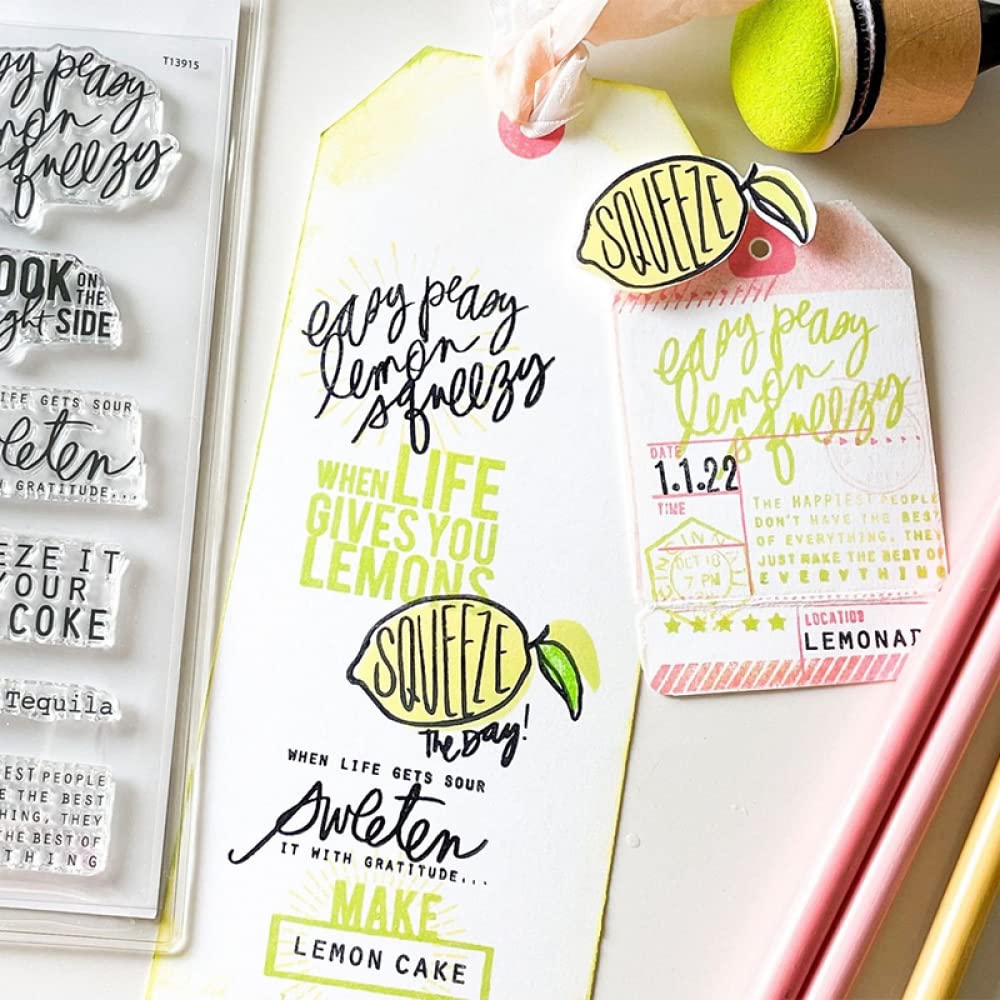 T13915
peasy
squeezy
OOK ON
THE
SIDE
IFE GETS SOUR
WITH GRATITUDE...
EZE IT
YOUR
COKE
Tequila
EST PEOPLE
E THE BEST
HING, THEY
THE BEST OF
THING
easy peasy
lemon
squeezy
WHEN LIFE
GIVES YOU
LEMONS
SQUEEZE
The Day!
WHEN LIFE GETS SOUR
sweeten
IT WITH GRATITUDE...
MAKE
LEMON CAKE
SQUEEZE
easy peasy
lemon
squeezy
DATE
1.1.22
TIME
OCT 10
7 PM
THE HAPPIEST PEOPLE
DON'T HAVE THE BEST
OF EVERYTHING, THEY
JUST MAKE THE BEST OF
EVERYTHING
LOCATION
LEMONAD